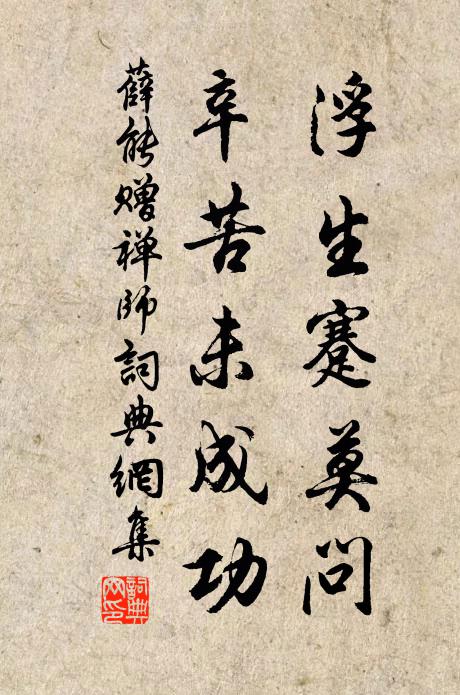 浮生蹇莫问
辛苦未成功
薛能赠禅师詞典網集
詞典网印